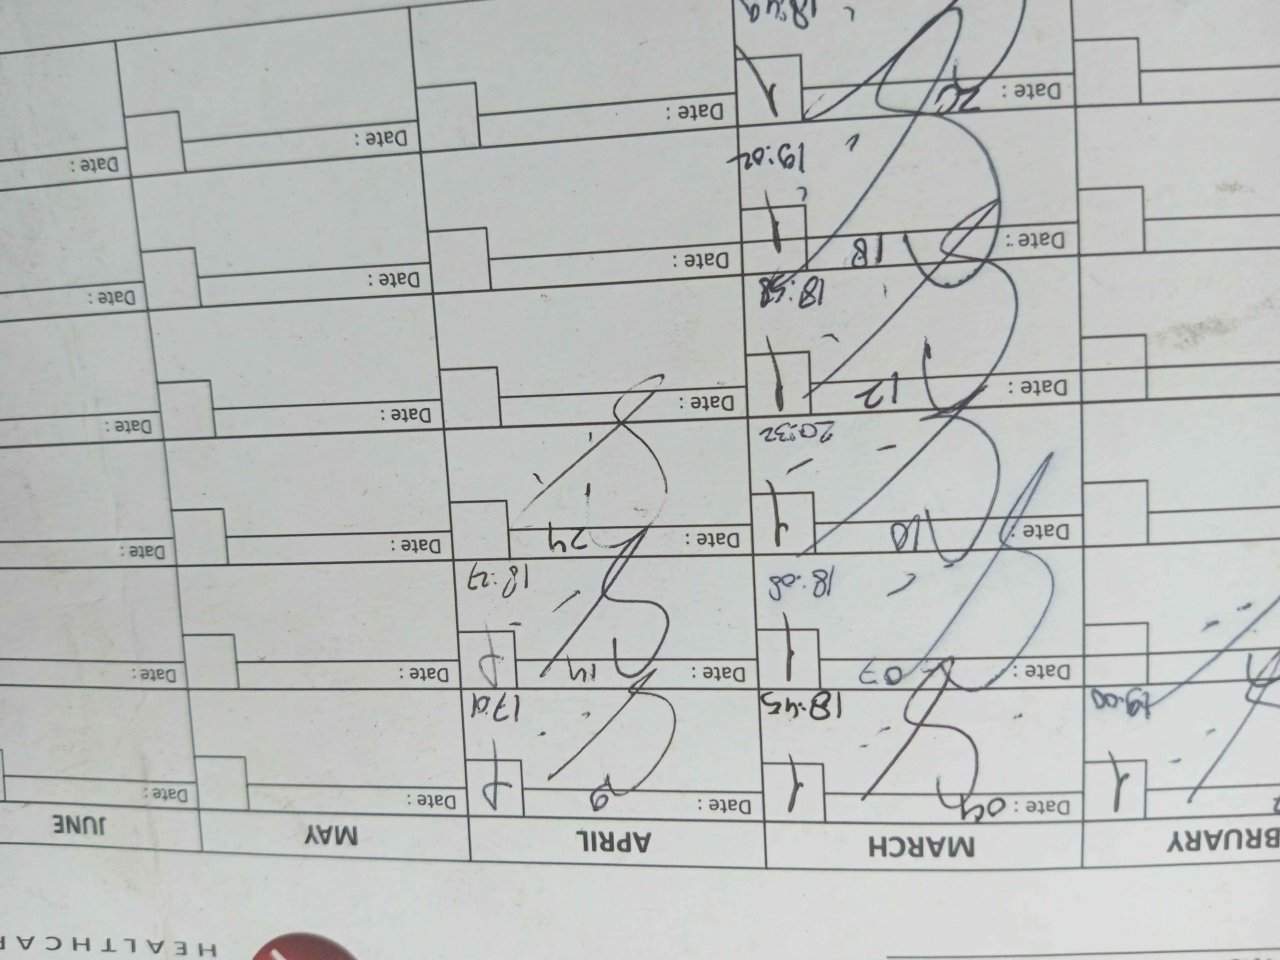 HEALTHCA
BRUARY MARCH APRIL MAY JUNE
Date : 04 Date : 9 Date : Date :
1 1
19:00 18:45 17:01
Date : 07 Date : 14 Date : Date :
1
18:08 18:27
Date : 10 Date : 24 Date : Date :
1
20:32
Date : 12 Date : Date : Date :
1
18:58
Date : 18 Date : Date : Date :
1
19:02
Date : Date : Date : Date :
1
18:49